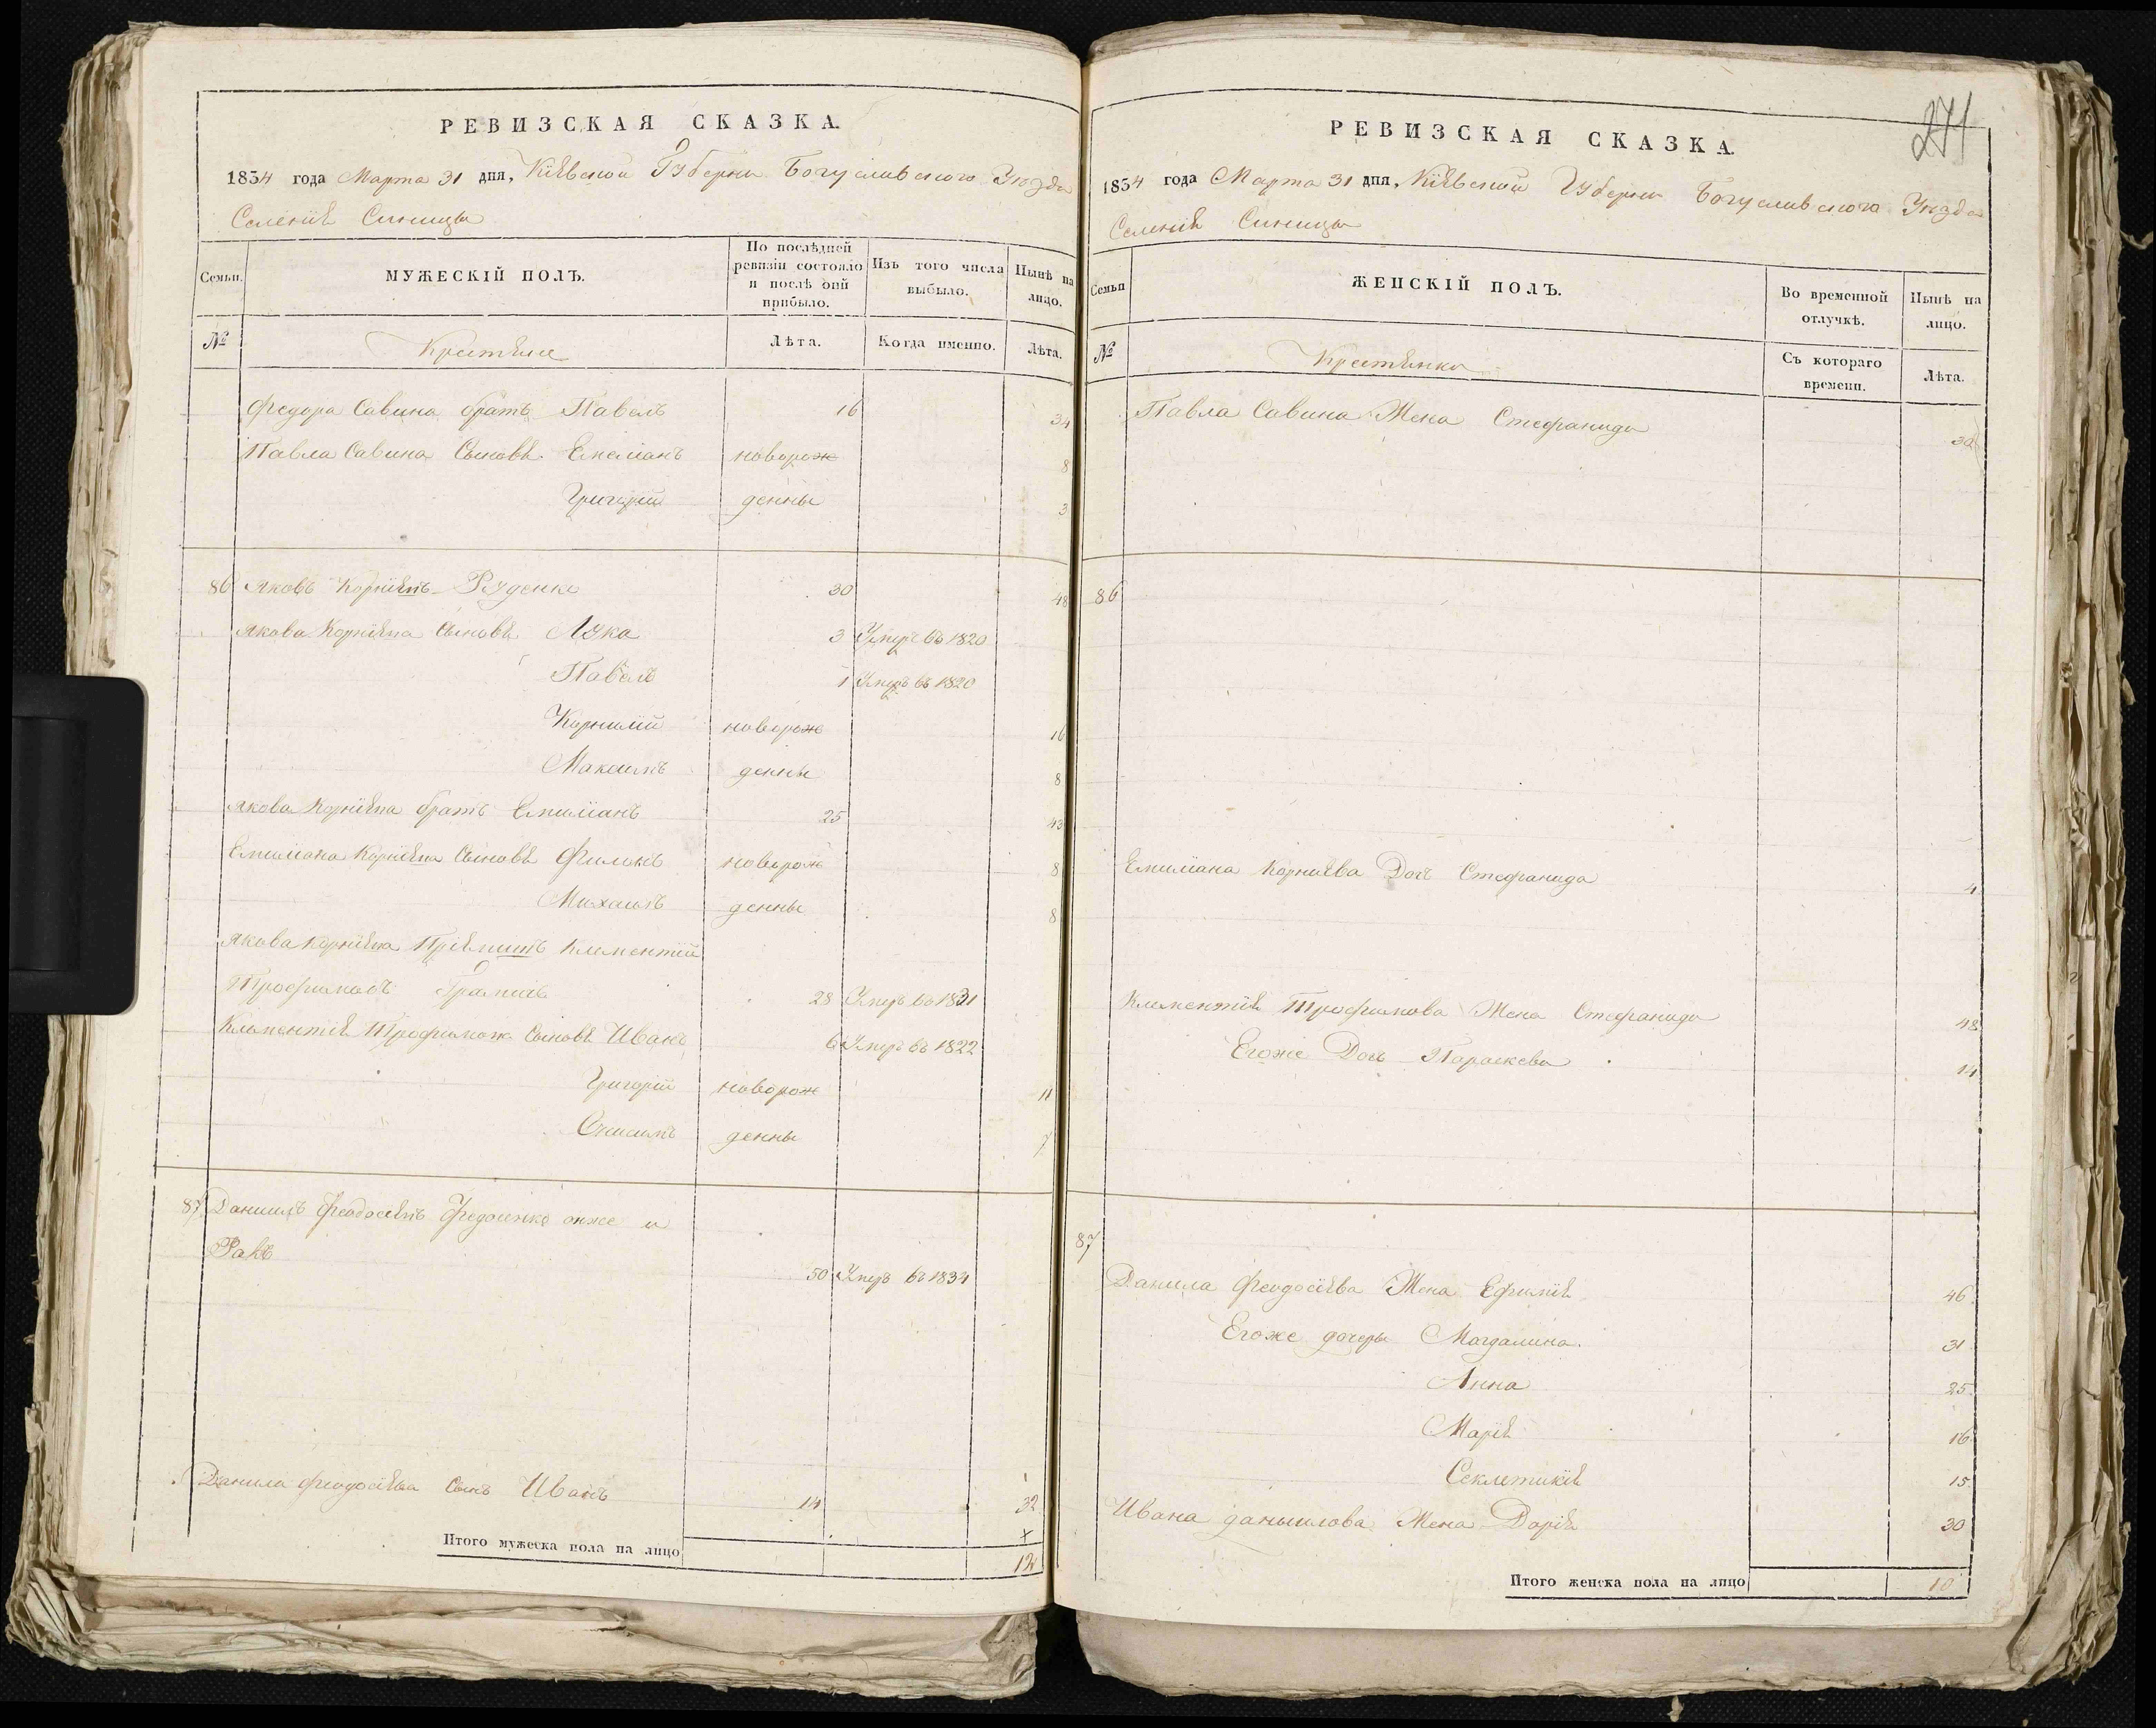 РЕВИЗСКАЯ СКАЗКА.
1834 года Марта 31 дня, Кіевской Губерніи Богуславского Уезда
Селеніе Синицы
Семьи.
МУЖЕСКІЙ ПОЛЪ.
По послѣдней ревизіи состояло и послѣ оній прибыло.
Изъ того числа выбыло.
Нынѣ на лицо.
№
Лѣта.
Когда именно.
Лѣта.
Федора Савина братъ Павелъ 16 34
Павла Савина Сыновѣ Емеліанъ новорож 8
Григорій денны 3
86 Яковъ Руденко 30 48
Якова Сыновѣ Лука 3 Умеръ въ 1820
Павелъ 1 Умеръ въ 1820
Корнилій новорож 16
Максимъ денны 8
Якова братъ Емиліанъ 25 43
Емиліана Сыновѣ Филонъ новорож 8
Михаилъ денны 8
Якова Клементій
Трофимовъ 28 Умеръ въ 1831
Сыновѣ Иванъ 6 Умеръ въ 1822
Григорій новорож 11
Онисимъ денны 7
87 Даниилъ онже и
Ракъ
50 Умеръ въ 1834
Данила Феодосіева Сынъ Иванъ 14 32
Итого мужеска пола на лицо 12
РЕВИЗСКАЯ СКАЗКА.
271
1834 года Марта 31 дня, Кіевской Губерніи Богуславского Уезда
Селеніе Синицы
Семьи
ЖЕНСКІЙ ПОЛЪ.
Во временной отлучкѣ.
Нынѣ на лицо.
№
Съ котораго времени.
Лѣта.
Павла Савина Жена Стефанида 30
86
Емиліана Корніева Дочъ Стефанида 4
Клементіѣ Трофимова Жена Стефанида 48
Егоже Дочъ Параскева 14
87
Данила Феодосіева Жена Ефиміѣ 46
Егоже дочеры Магдалина. 31
Анна 25
Маріѣ 16
Секлетикіѣ 15
Ивана даниилова Жена Даріѣ 30
Итого женска пола на лицо 10